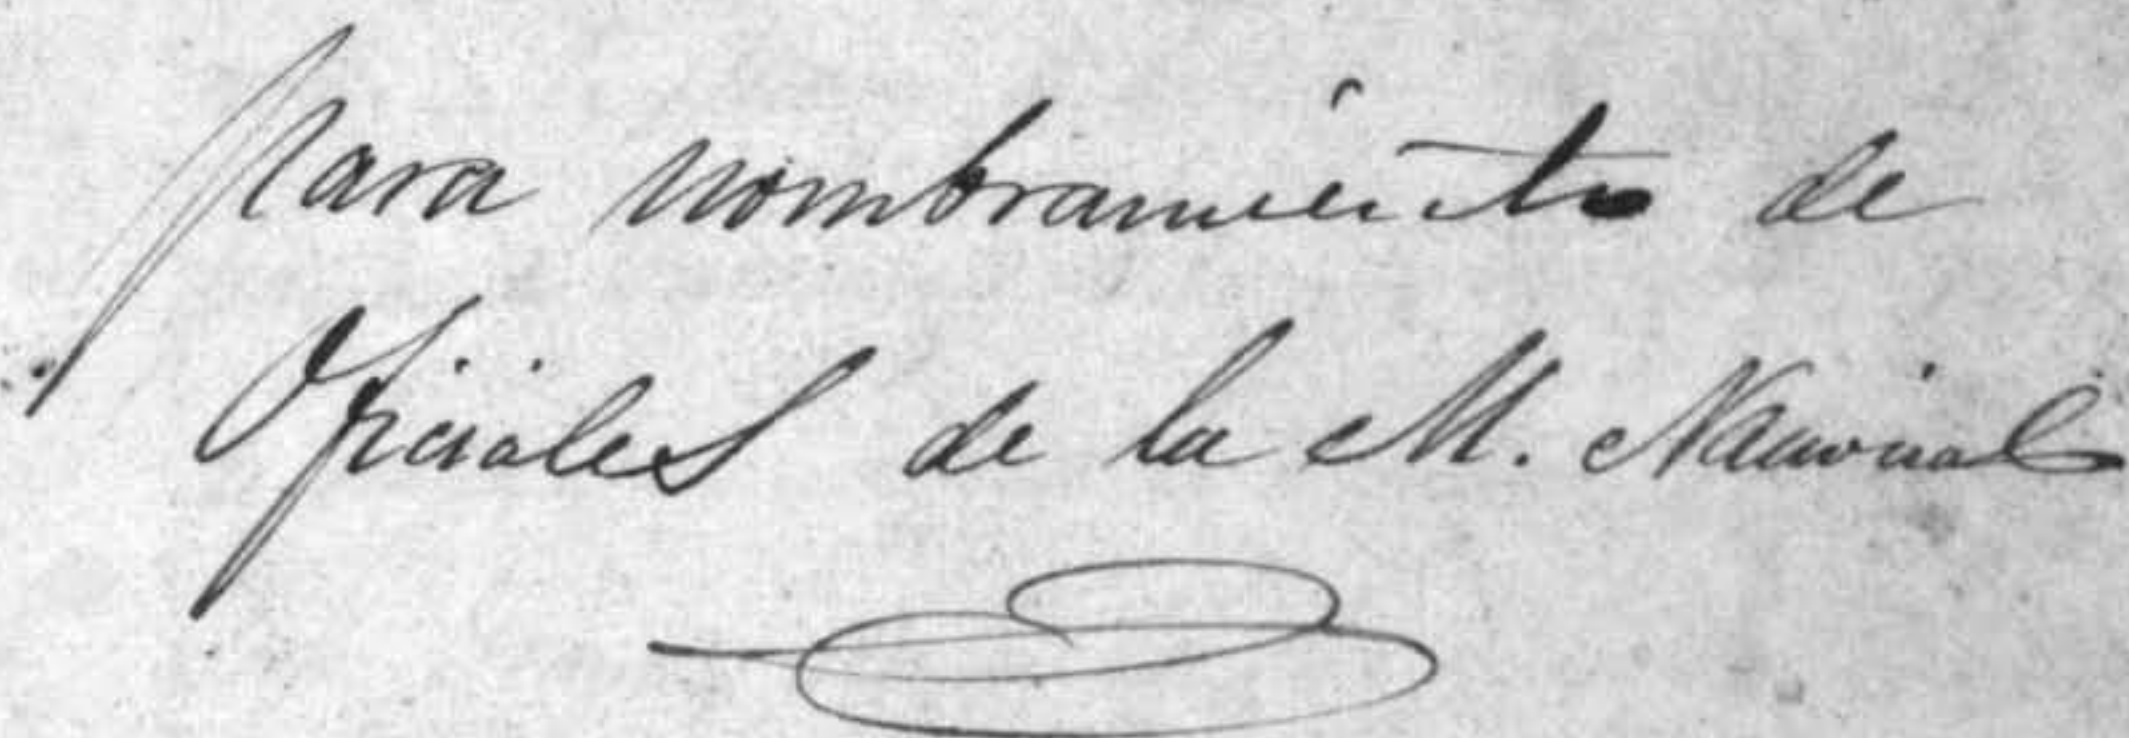 para nombramiento de
Oficiales de la M. Nacional